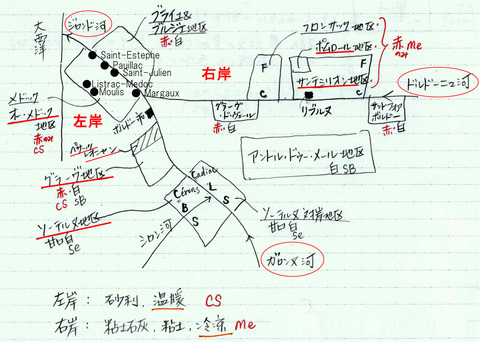 大西洋
ジロンド河
ブライ&
ブルジュ地区
赤・白
Saint-Estephe
Pauillac
Saint-Julien
Listrac-Medoc
Moulis
Margaux
メドック
オ・メドック
地区
赤
CS
左岸
右岸
ボルドー市
ペサック
レオニャン
グラーヴ地区
赤・白
CS SB
フロンサック地区
ポムロール地区
サンテミリオン地区
赤 Me
F
C
F
C
グラーヴ
ド・ヴェール
赤・白
リブルヌ
サント・フォワ
ボルドー
赤・白
ドルドーニュ河
アントル・ドゥー・メール地区
白 SB
Cadillac
Cérons
L
B
S
S
ソーテルヌ地区
甘口白
Se
シロン河
ソーテルヌ対岸地区
甘口白
Se
ガロンヌ河
左岸: 砂利, 温暖 CS
右岸: 粘土石灰, 粘土, 冷涼 Me